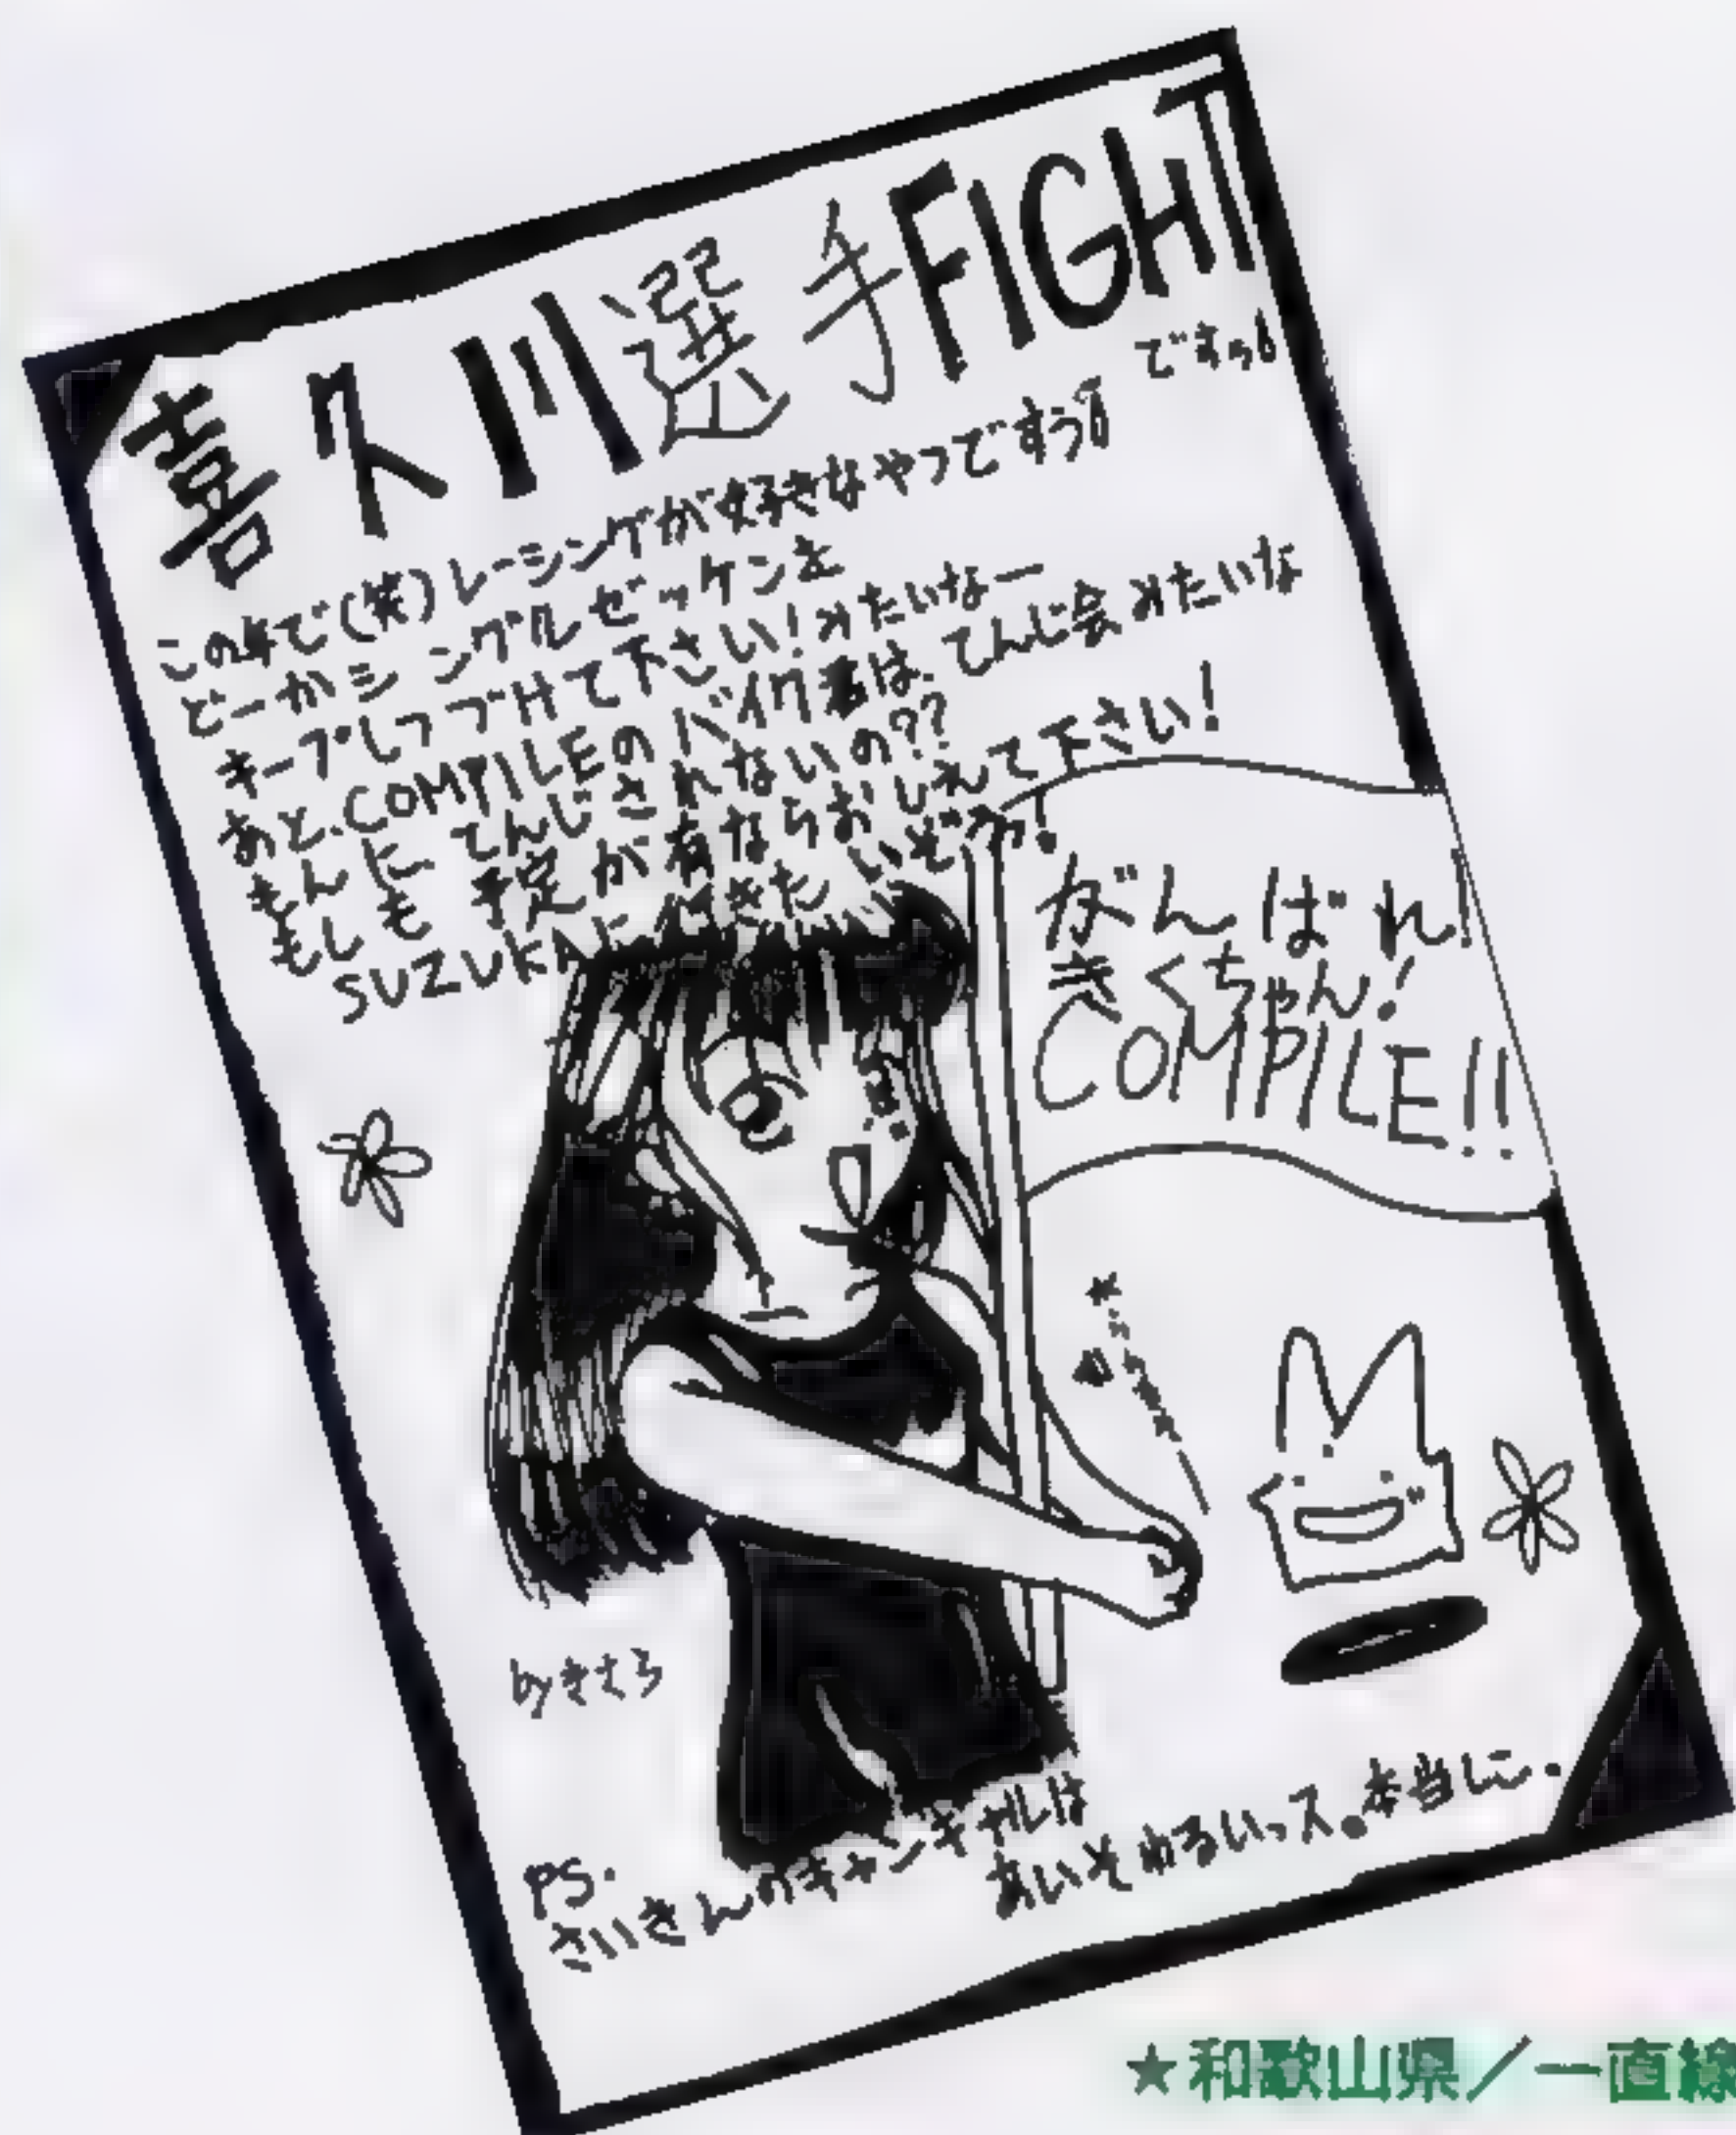 喜久川選手FIGHT
ですっ
この年で(笑)レーシングが好きなやつですぅ
どーかシングルゼッケンを
キープしつづけて下さい!みたいなー
あと、COMPILEのバイク君は、てんじ会みたいな
もんに てんじされないの??
もしも 予定が有ならおしえて下さい!
SUZUKAに いきたいぞっ!
がんばれ!
きくちゃん!
COMPILE!!
byきさら
PS.
さいきんのキャンギャルは
あいそわるいっス。本当に.
★和歌山県/一直線